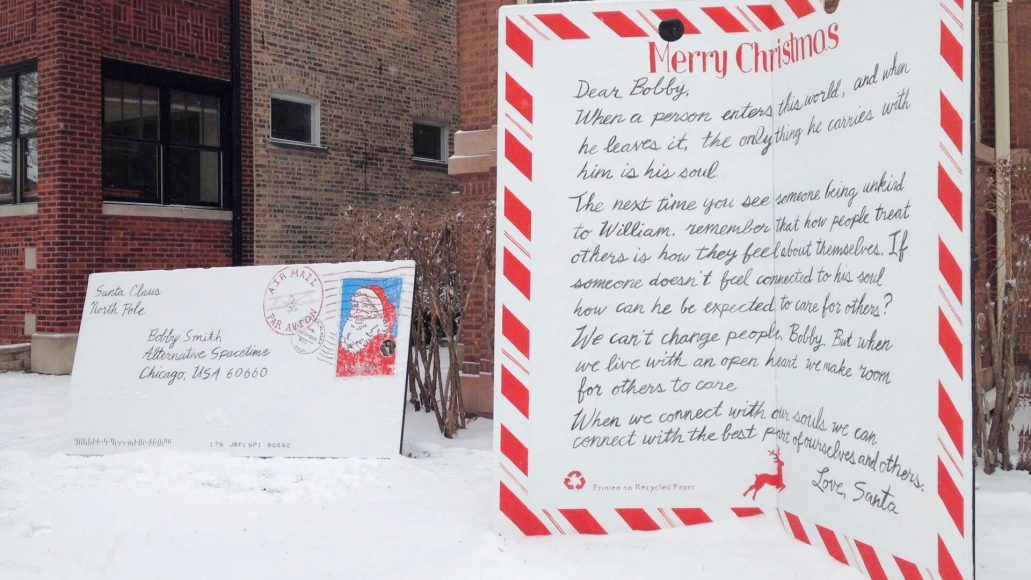 Merry Christmas
Dear Bobby,
When a person enters this world, and when
he leaves it, the only thing he carries with
him is his soul
The next time you see someone being unkind
to William, remember that how people treat
others is how they feel about themselves. If
someone doesn't feel connected to his soul
how can he be expected to care for others?
We can't change people, Bobby. But when
we live with an open heart we make room
for others to care
When we connect with our souls we can
connect with the best part of ourselves and others.
Love, Santa
Printed on Recycled Paper
Santa Claus
North Pole
AIR MAIL
PAR AVION
Bobby Smith
Alternative Spacetime
Chicago, USA 60660